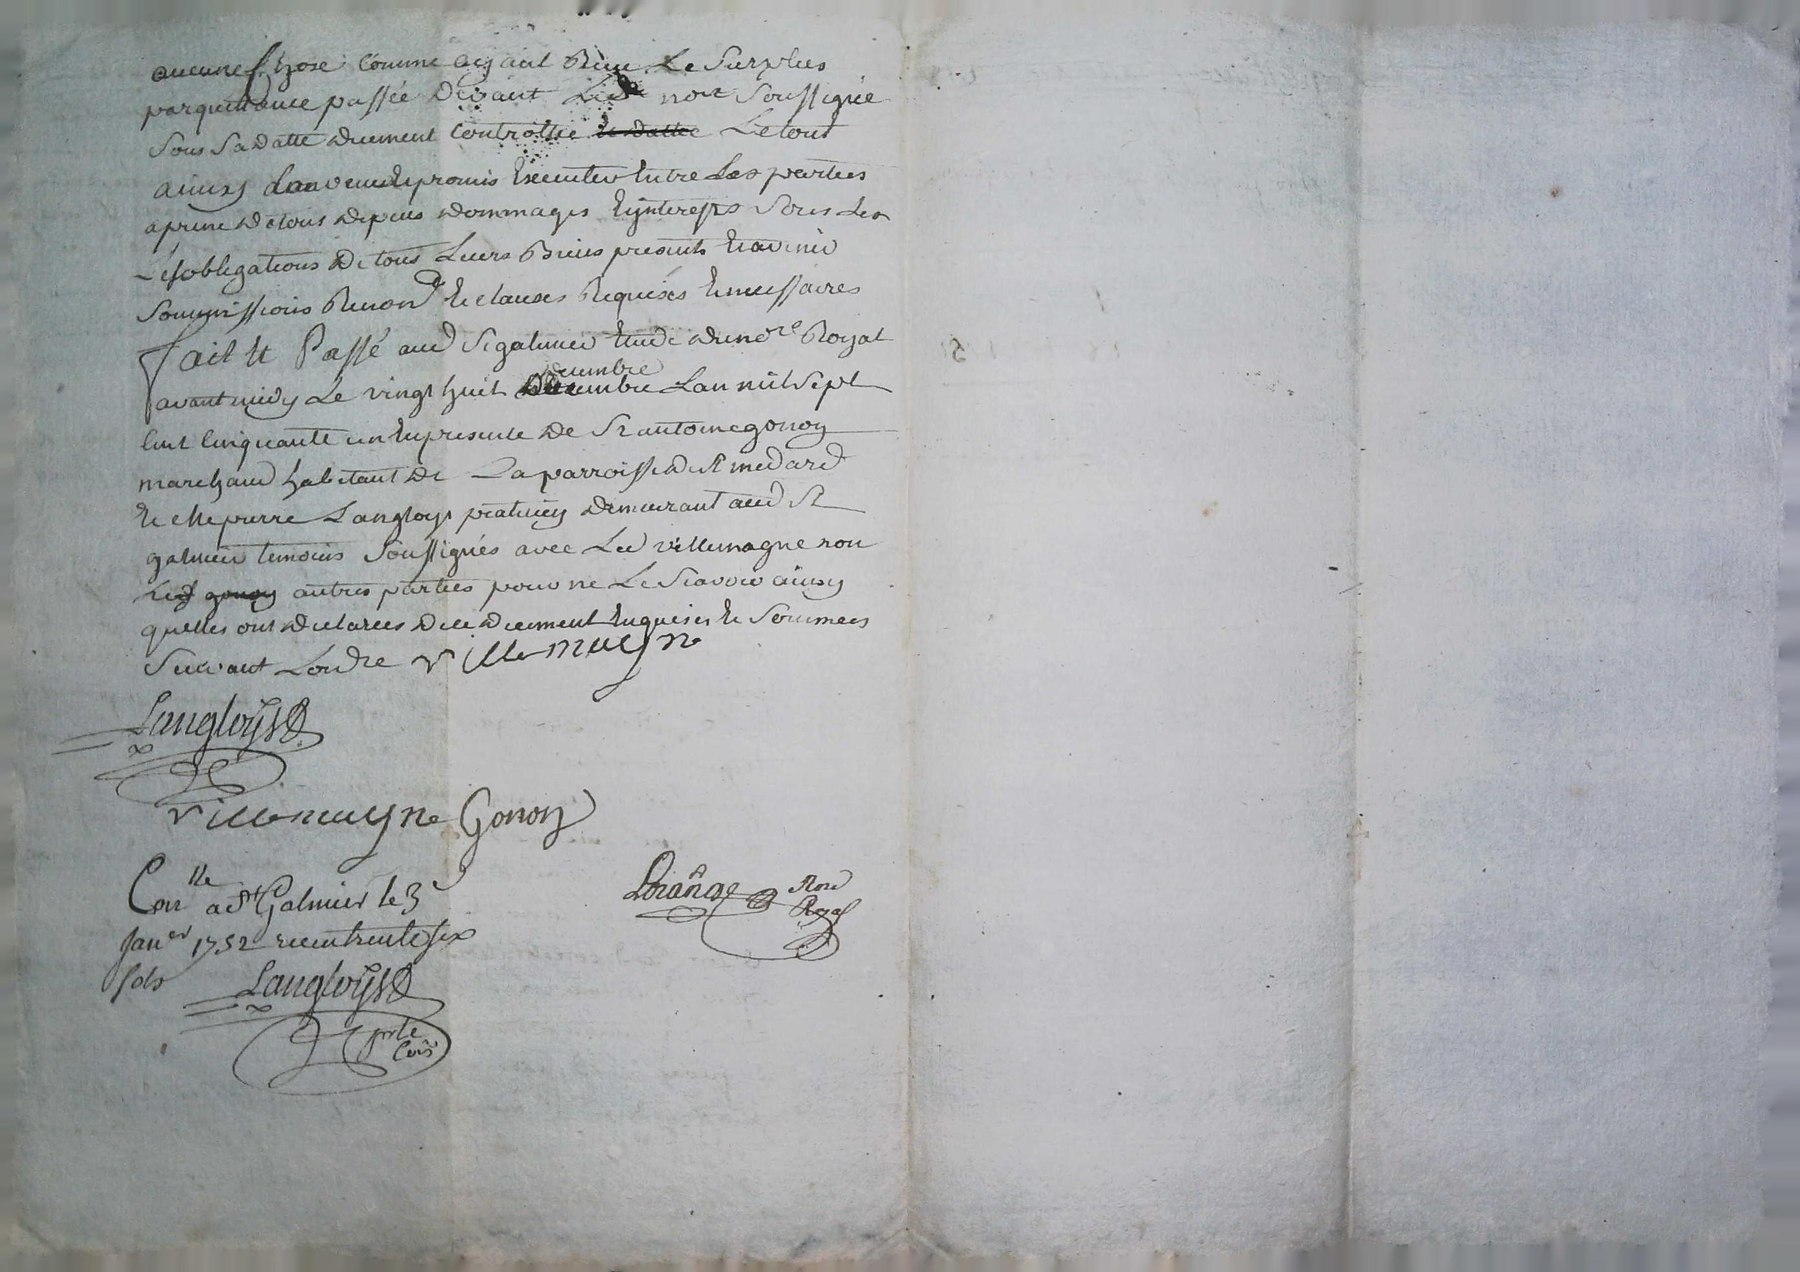 aucune chose comme ayant Reçu Le Surplus
par quittance passée Devant Led nore Soussigné
Sous Sa Datte Duement Controllée Le tout
ainsy Convenu et promis Executer Entre Les parties
a peine De tous Depens Dommages Et interests Sous Les
obligations De tous Leurs Biens presents Et avenir
Soummissions Renond Et clauses Requises Et necessaires
fait Et Passé aud St galmier Etude Du nore Royal
avant midy Le vingt huit Decembre Lan mil Sept
Decembre
Cent Cinquante un En presence De Sr antoine gonon
marchand habitant De La parroisse De St medard
Et Me pierre Langloys praticien Demeurant aud St
galmier temoins Soussignés avec Led villemagne non
Led gonon autres parties pour ne Le Scavoir ainsy
quelles ont Declarées De ce Duement Enquises Et Sommées
Suivant Lordre villemagne
Langloys
villemagne Gonon
Conlle a St Galmier le 3e
Janer 1752 recu trente six
sols
Lorange Nore Royal
Langloys